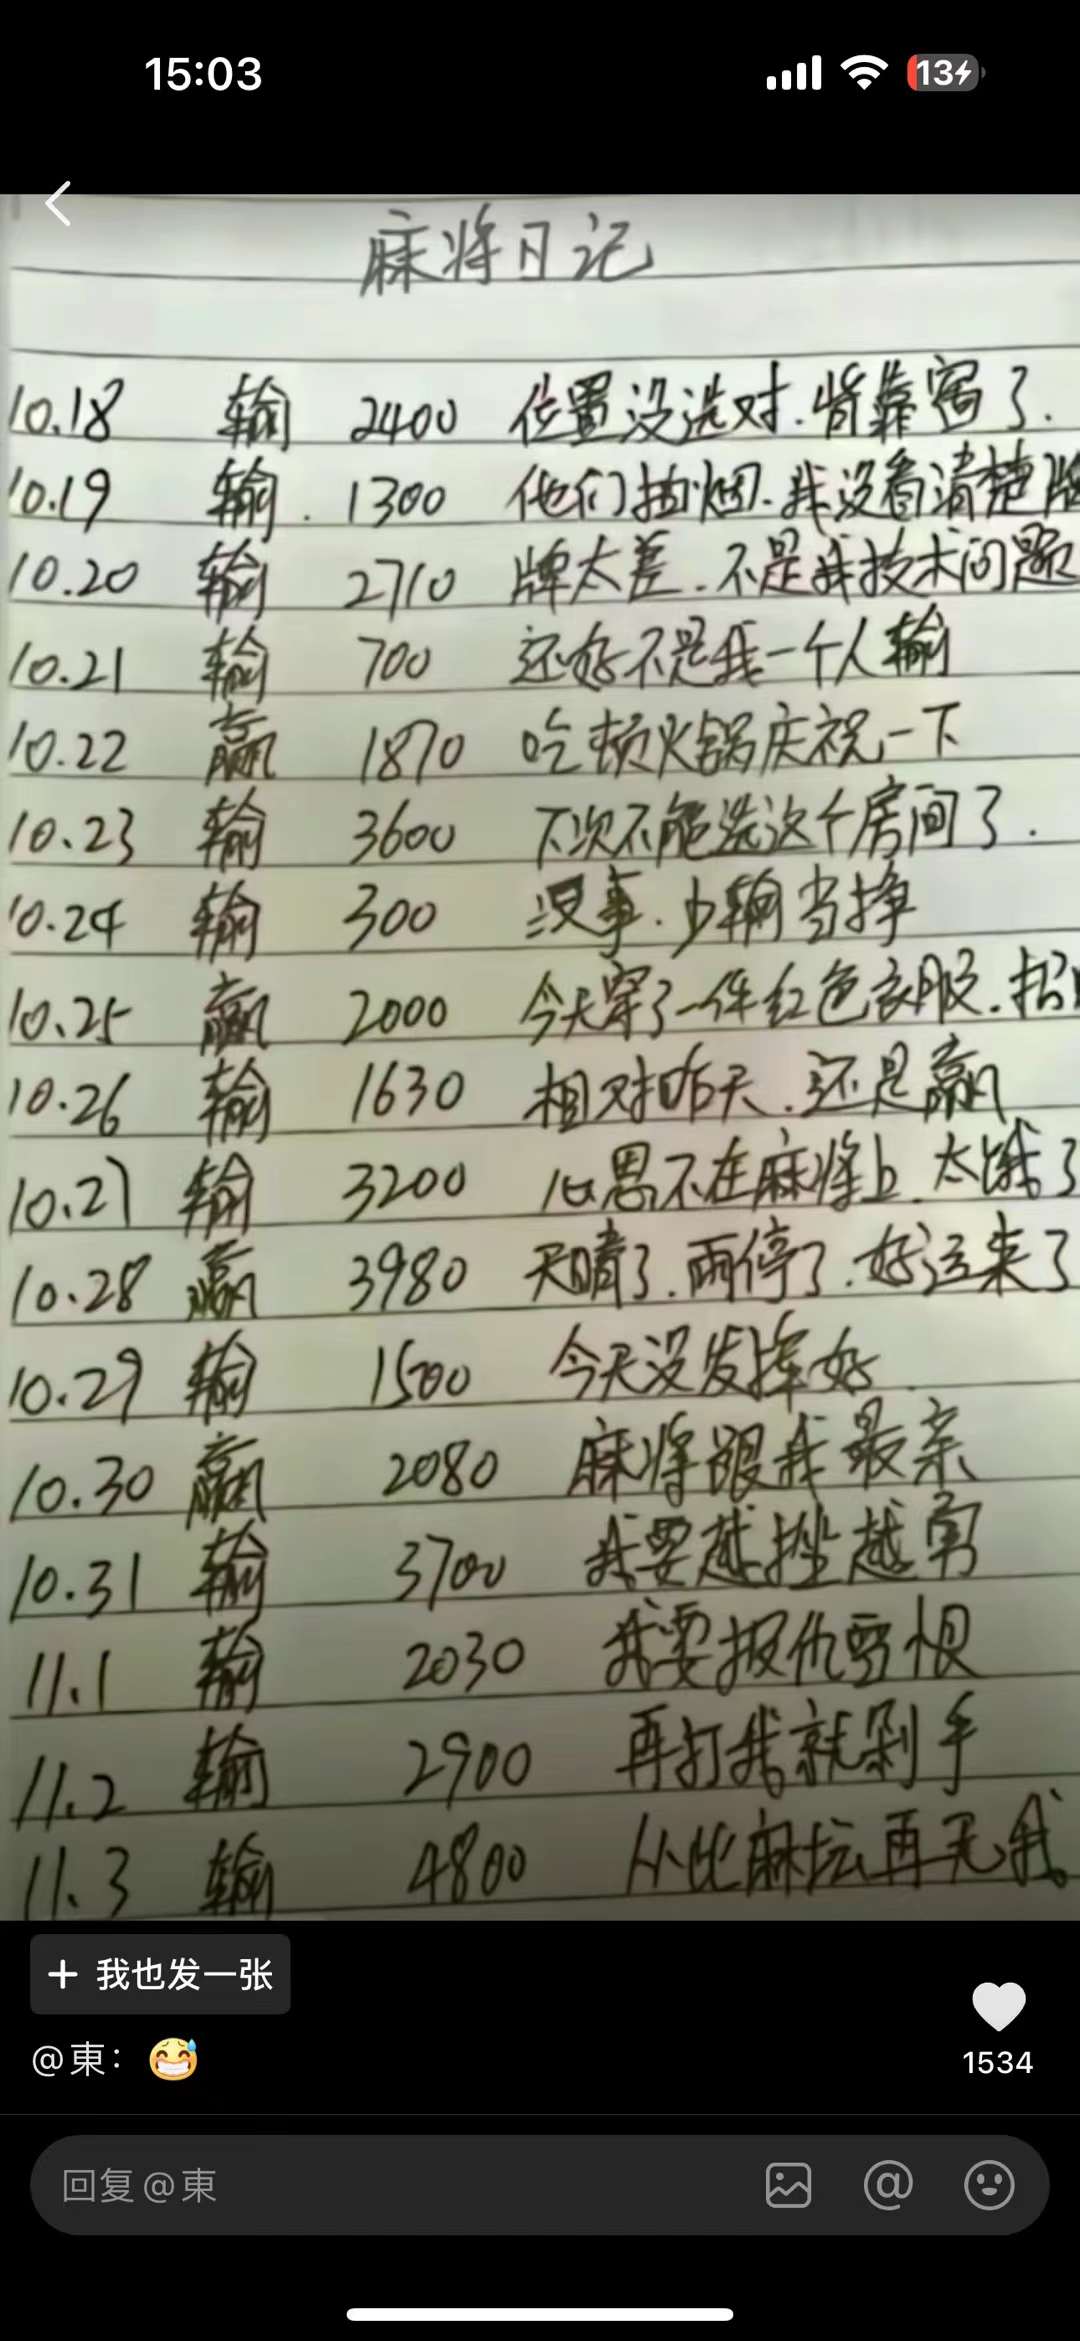 15:03
13
麻将日记
10.18 输 2400 位置没选对.背靠窗了.
10.19 输. 1300 他们抽烟.我没看清楚牌
10.20 输 2710 牌太差.不是我技术问题
10.21 输 700 还好不是我一个人输
10.22 赢 1870 吃顿火锅庆祝一下
10.23 输 3600 下次不能选这个房间了.
10.24 输 300 没事.少输当挣
10.25 赢 2000 今天穿了一件红色衣服.招
10.26 输 1630 相对昨天.还是赢
10.27 输 3200 心思不在麻将上.太饿了
10.28 赢 3980 天晴了.雨停了.好运来了
10.29 输 1500 今天没发挥好
10.30 赢 2080 麻将跟我最亲
10.31 输 3700 我要越挫越勇
11.1 输 2030 我要报仇雪恨
11.2 输 2900 再打我就剁手
11.3 输 4800 从此麻坛再无我
+ 我也发一张
@東：
1534
回复@東